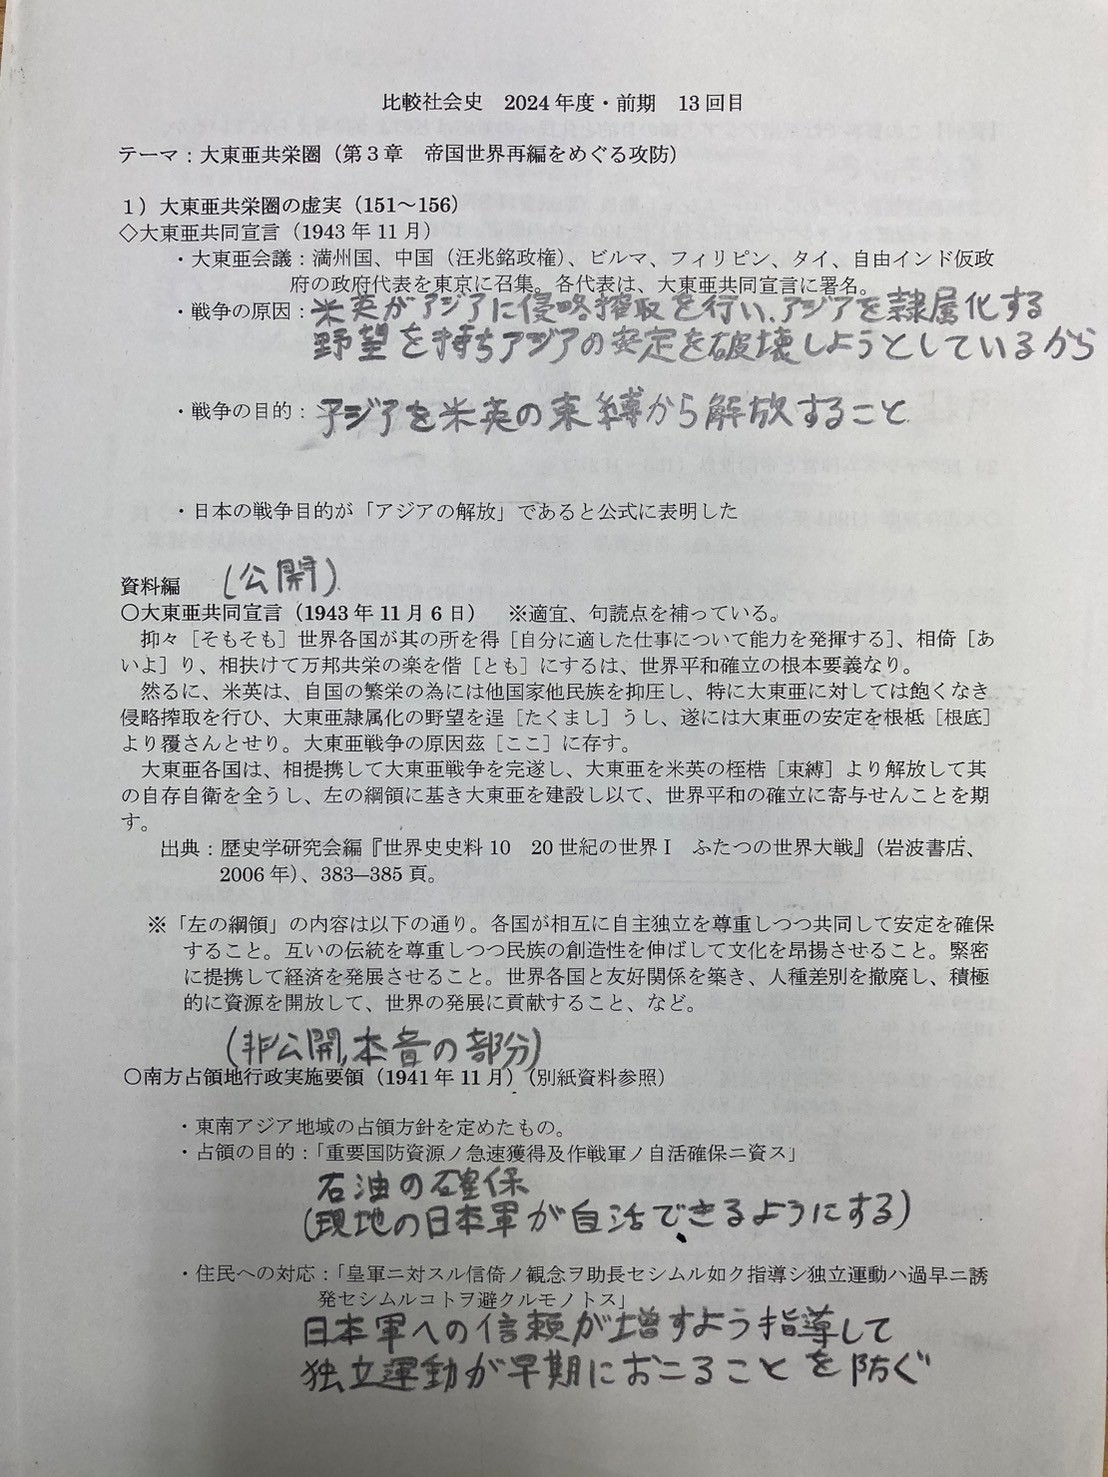 比較社会史　2024年度・前期　13回目
テーマ：大東亜共栄圏（第３章　帝国世界再編をめぐる攻防）
１）大東亜共栄圏の虚実（151～156）
◇大東亜共同宣言（1943年11月）
・大東亜会議：満州国、中国（汪兆銘政権）、ビルマ、フィリピン、タイ、自由インド仮政
府の政府代表を東京に召集。各代表は、大東亜共同宣言に署名。
・戦争の原因：米英がアジアに侵略搾取を行い、アジアを隷属化する
野望を持ちアジアの安定を破壊しようとしているから
・戦争の目的：アジアを米英の束縛から解放すること
・日本の戦争目的が「アジアの解放」であると公式に表明した
資料編　（公開）
○大東亜共同宣言（1943年11月6日）　※適宜、句読点を補っている。
抑々［そもそも］世界各国が其の所を得［自分に適した仕事について能力を発揮する］、相倚［あ
いよ］り、相扶けて万邦共栄の楽を偕［とも］にするは、世界平和確立の根本要義なり。
然るに、米英は、自国の繁栄の為には他国家他民族を抑圧し、特に大東亜に対しては飽くなき
侵略搾取を行ひ、大東亜隷属化の野望を逞［たくまし］うし、遂には大東亜の安定を根柢［根底］
より覆さんとせり。大東亜戦争の原因茲［ここ］に存す。
大東亜各国は、相提携して大東亜戦争を完遂し、大東亜を米英の桎梏［束縛］より解放して其
の自存自衛を全うし、左の綱領に基き大東亜を建設し以て、世界平和の確立に寄与せんことを期
す。
出典：歴史学研究会編『世界史史料10　20世紀の世界Ⅰ　ふたつの世界大戦』（岩波書店、
2006年）、383―385頁。
※「左の綱領」の内容は以下の通り。各国が相互に自主独立を尊重しつつ共同して安定を確保
すること。互いの伝統を尊重しつつ民族の創造性を伸ばして文化を昂揚させること。緊密
に提携して経済を発展させること。世界各国と友好関係を築き、人種差別を撤廃し、積極
的に資源を開放して、世界の発展に貢献すること、など。
（非公開,本音の部分）
○南方占領地行政実施要領（1941年11月）（別紙資料参照）
・東南アジア地域の占領方針を定めたもの。
・占領の目的：「重要国防資源ノ急速獲得及作戦軍ノ自活確保ニ資ス」
石油の確保
（現地の日本軍が自活できるようにする）
・住民への対応：「皇軍ニ対スル信倚ノ観念ヲ助長セシムル如ク指導シ独立運動ハ過早ニ誘
発セシムルコトヲ避クルモノトス」
日本軍への信頼が増すよう指導して
独立運動が早期におこることを防ぐ